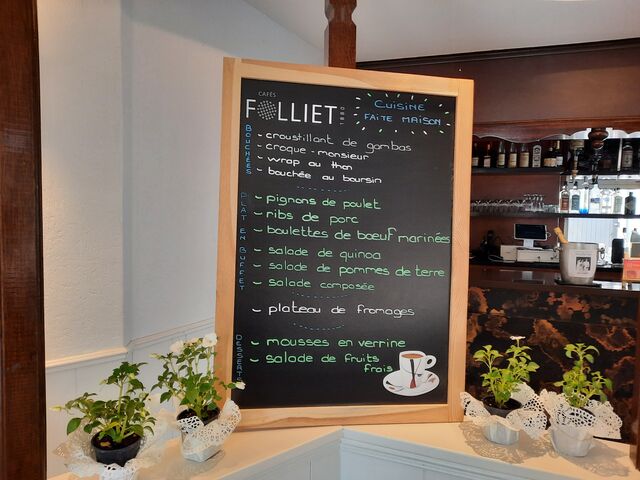 CAFÉS
FOLLIET
1880
CUISINE
FAITE MAISON
BOUCHÉES
- croustillant de gambas
- croque-monsieur
- wrap au thon
- bouchée au boursin
PLAT EN BUFFET
- pignons de poulet
- ribs de porc
- boulettes de bœuf marinées
- salade de quinoa
- salade de pommes de terre
- salade composée
- plateau de fromages
DESSERTS
- mousses en verrine
- salade de fruits
frais